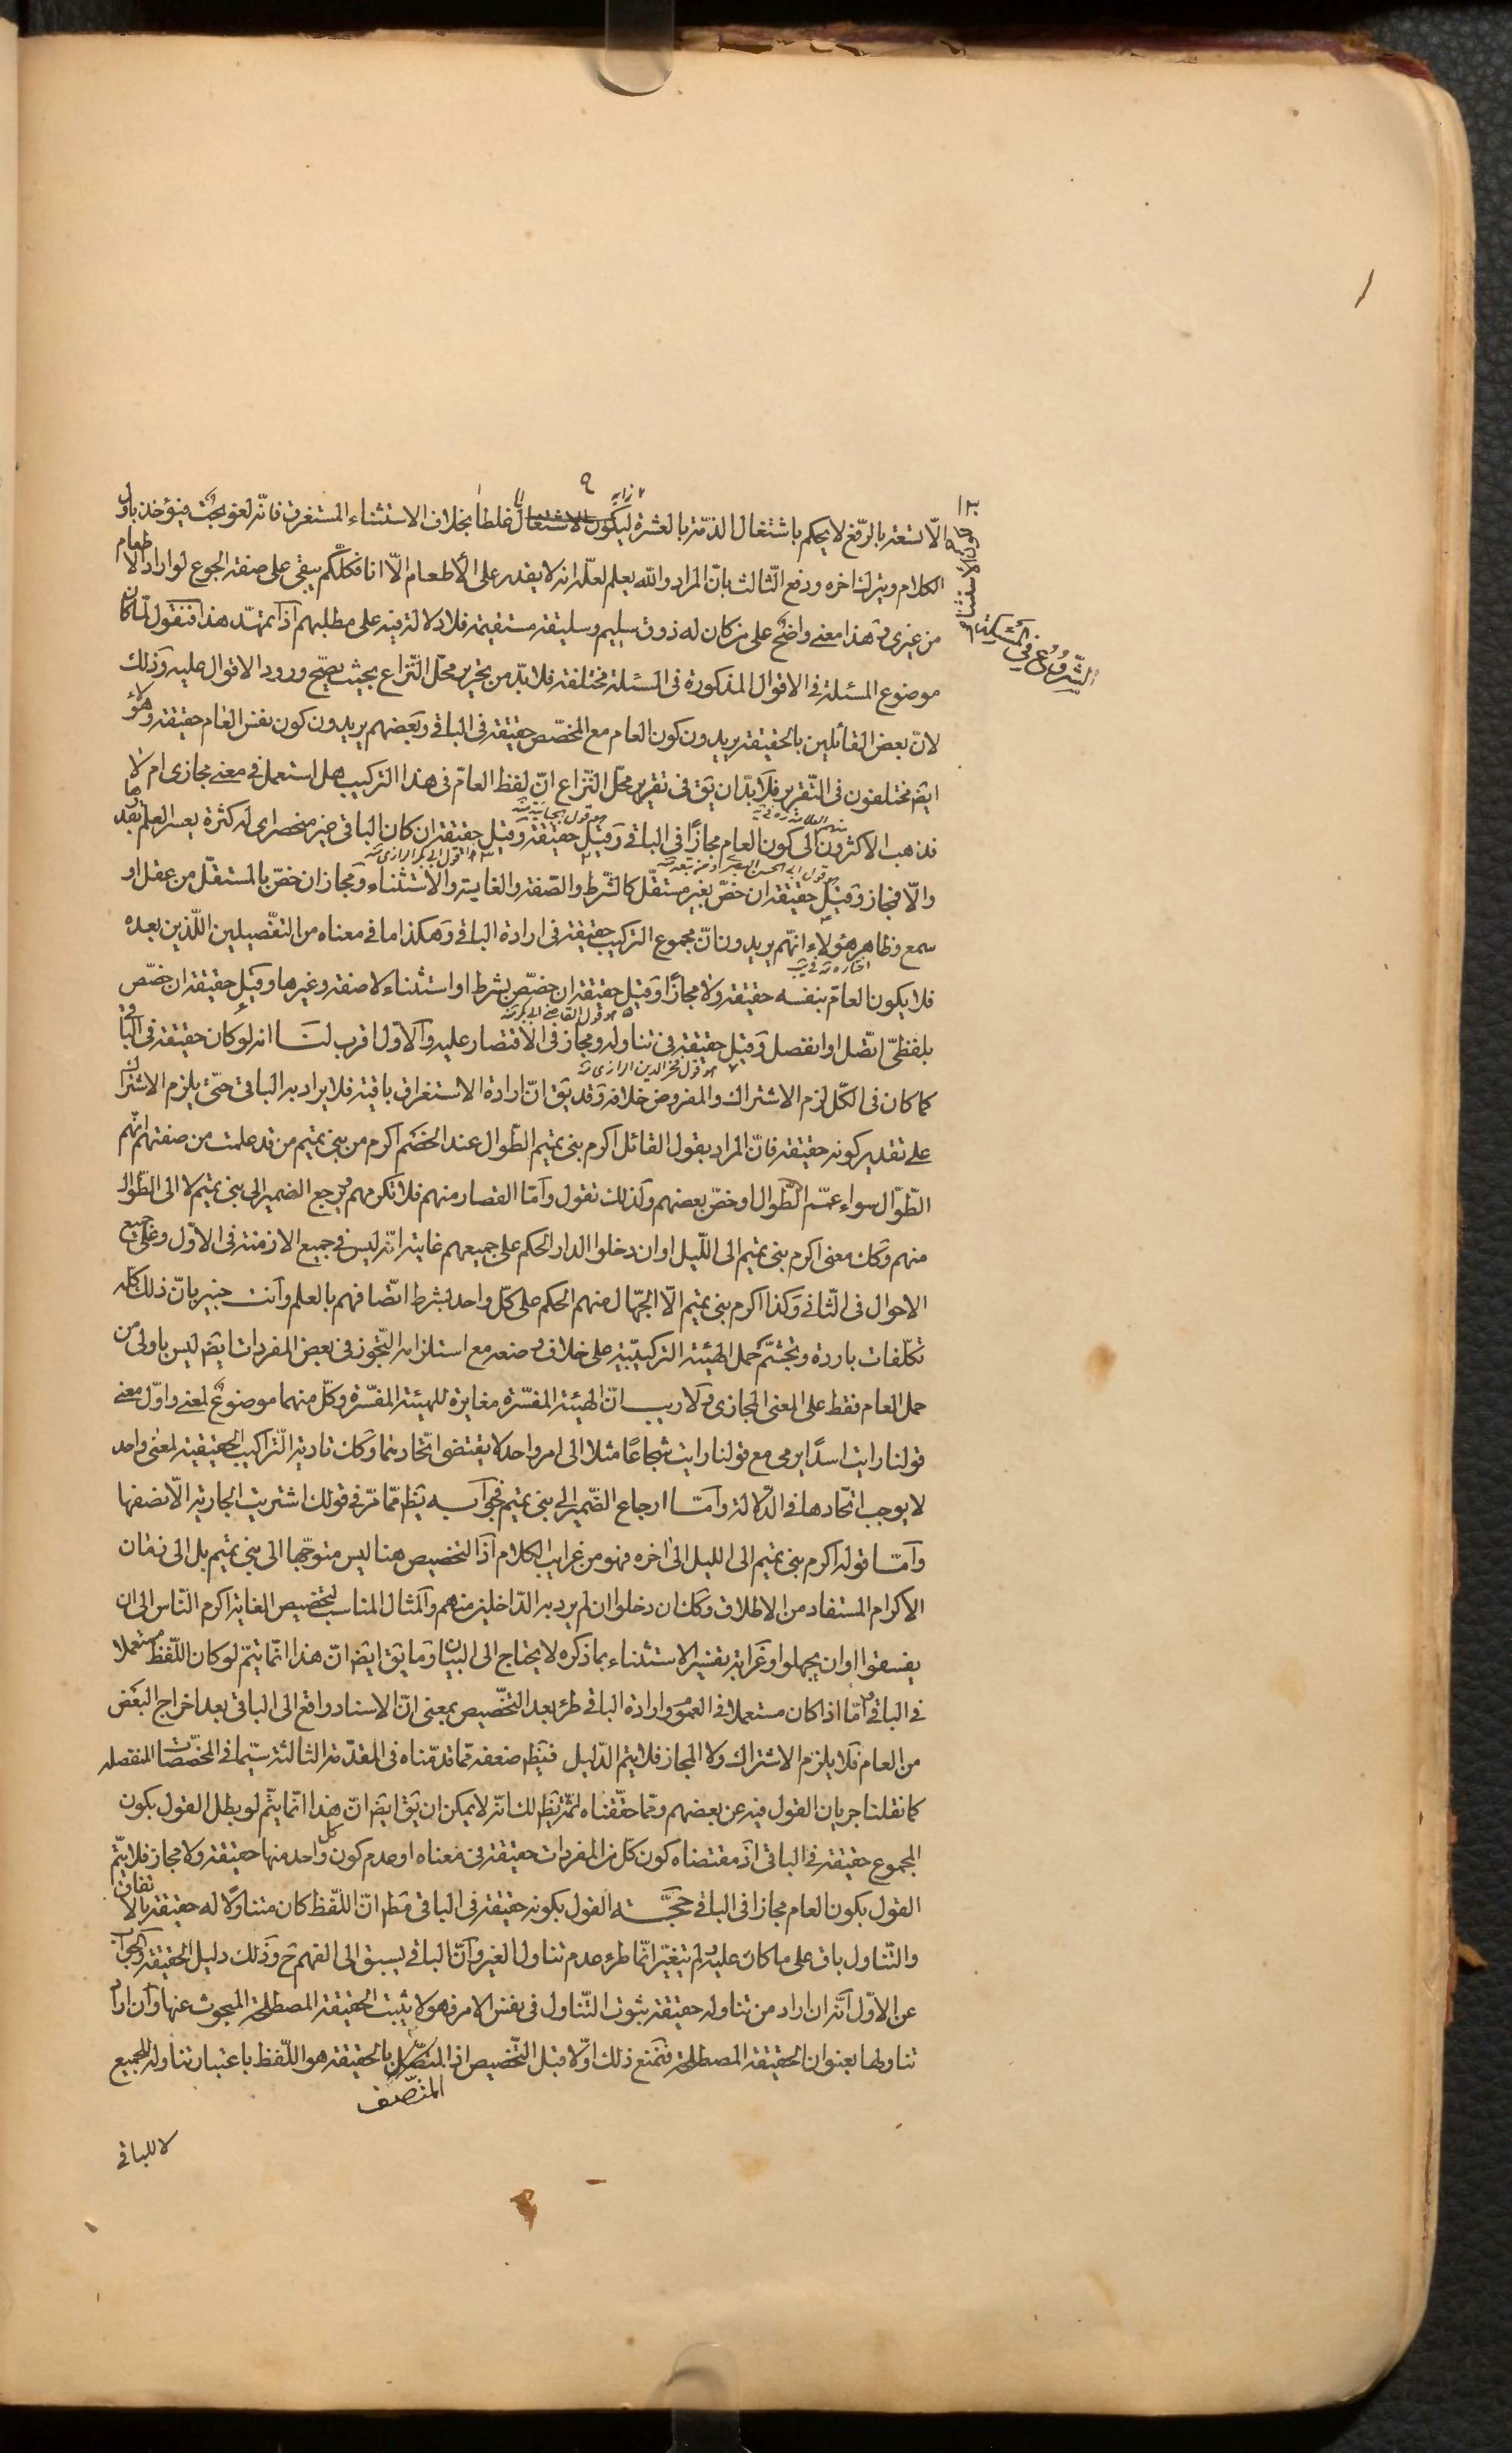 الّا تسعة بالرّفع لا يحكم باشتغال الذمّة بالعشرة ليكون الاشتغال غلطا بخلاف الاستثناء المستغرق فانّه لغو بحت فيؤخذ باول
الكلام ويترك اخره ودفع الثّالث بانّ المراد والله يعلم لعلّه انه لا يقدر على الاطعام الّا انا فكلّكم يبقى على صفة الجوع لو اراد الاطعام
من غيرى وهذا معنى واضح على من كان له ذوق سليم وسليقة مستقيمة فلا دلالة فيه على مطلبهم اذا تمهّد هذا فنقول لمّا كان
موضوع المسئلة فى الاقوال المذكورة فى المسئلة مختلفة فلا بدّ من تحرير محلّ النّزاع بحيث يصحّ ورود الاقوال عليه وذلك
لانّ بعض القائلين بالحقيقة يريدون كون العام مع المخصّص حقيقة فى الباقى وبعضهم يريدون كون نفس العام حقيقة وهؤلاء
ايضم مختلفون فى التّقرير فلا بدّ ان يق فى تقرير محلّ النّزاع انّ لفظ العامّ فى هذا التركيب هل استعمل فى معنى مجازى ام لا
فذهب الاكثرون الى كون العام مجازًا فى الباقى وقيل حقيقة وقيل حقيقة ان كان الباقى غير منحصر اى له كثرة يعسر العلم بقدرها
هو قول ابى بكر الرازى
والّا فمجاز وقيل حقيقة ان خصّ بغير مستقلّ كالشّرط والصّفة والغاية والاستثناء ومجاز ان خصّ بالمستقلّ من عقل او
سمع وظاهر هؤلاء انّهم يريدون انّ مجموع التركيب حقيقة فى ارادة الباقى وهكذا ما فى معناه من التفصيلين اللّذين بعده
فلا يكون العامّ بنفسه حقيقة ولا مجازًا وقيل حقيقة ان خصّص بشرط او استثناء لا صفة وغيرها وقيل حقيقة ان خصّص
هو قول القاضى ابى بكر
بلفظىّ اتّصل او انفصل وقيل حقيقة فى تناوله ومجاز فى الاقتصار عليه والاوّل اقرب لنا انه لو كان حقيقة فى الباقى
هو قول فخر الدين الرازى
كما كان فى الكلّ لزم الاشتراك والمفروض خلافه وقد يق انّ ارادة الاستغراق باقية فلا يراد به الباقى حتّى يلزم الاشتراك
على تقدير كونه حقيقة فانّ المراد بقول القائل اكرم بنى تميم الطّوال عند الخصم اكرم من بنى تميم من قد علمت من صفتهم انّهم
الطّوال سواء عمّهم الطّوال او خصّ بعضهم ولذلك تقول وامّا القصار منهم فلا تكرمهم ويرجع الضمير الى بنى تميم لا الى الطّوال
منهم وكك معنى اكرم بنى تميم الى اللّيل او ان دخلوا الدار الحكم على جميعهم غاية انّه ليس فى جميع الازمنة فى الاوّل وعلى جميع
الاحوال فى الثّانى وكذا اكرم بنى تميم الّا الجهّال منهم الحكم على كلّ واحد بشرط اتّصافهم بالعلم وانت خبير بانّ ذلك كلّه
تكلّفات باردة وتجشّم حمل الهيئة التركيبيّة على خلاف وضعه مع استلزامه التّجوّز فى بعض المفردات ايضم ليس باولى من
حمل العام فقط على المعنى المجازى ولا ريب انّ الهيئة المفسّرة مغايرة للهيئة المفسّرة وكلّ منهما موضوع لمعنى واوّل معنى
قولنا رايت اسدًا يرمى مع قولنا رايت شجاعًا مثلا الى امر واحد لا يقتضى اتّحادهما وكك تادية التّراكيب الحقيقية لمعنى واحد
لا يوجب اتّحادها فى الدّلالة وامّا ارجاع الضّمير الى بنى تميم فجوابه يظهر ممّا مرّ فى قولك اشتريت الجارية الّا نصفها
وامّا قوله اكرم بنى تميم الى الليل الى اخره فهو من غرايب الكلام اذ التخصيص هنا ليس متوجّها الى بنى تميم بل الى زمان
الاكرام المستفاد من الاطلاق وكك ان دخلوا ان لم يرد به الدّاخلين منهم والمثال المناسب لتخصيص الغاية اكرم النّاس الى ان
يفسقوا او ان يجهلوا وغرابة تفسير الاستثناء بما ذكره لا يحتاج الى البيان وما يق ايضم انّ هذا انّما يتمّ لو كان اللّفظ مستعملا
فى الباقى وامّا اذا كان مستعملا فى العموم وارادة الباقى طرء بعد التّخصيص بمعنى انّ الاسناد واقع الى الباقى بعد اخراج البعض
من العام فلا يلزم الاشتراك ولا المجاز فلا يتمّ الدّليل فيظهر ضعفه ممّا قدّمناه فى المقدّمة الثالثة سيّما فى المخصّصات المنفصله
كما نقلنا جريان القول فيه عن بعضهم وممّا حقّقناه ثمّة يظهر لك انّه لا يمكن ان يق ايضم انّ هذا انّما يتّم لو بطل القول بكون
المجموع حقيقة فى الباقى اذ مقتضاه كون كلّ من المفردات حقيقة فى معناه او عدم كون كل واحد منها حقيقة ولا مجاز فلا يتّم
القول بكون العام مجازا فى الباقى حجّة القول بكونه حقيقة فى الباقى مطم انّ اللّفظ كان متناولًا له حقيقة بالاتفاق
والتّناول باق على ما كان عليه ولم يتغيّر انّما طرء عدم تناول الغير وانّ الباقى يسبق الى الفهم ح وذلك دليل الحقيقة والجواب
عن الاوّل انّه ان اراد من تناوله حقيقة ثبوت التّناول فى نفس الامر فهو لا يثبت الحقيقة المصطلحة المبحوث عنها وان اراد
تناولها بعنوان الحقيقة المصطلحة فنمنع ذلك اوّلا قبل التّخصيص اذ المتّصل بالحقيقة هو اللّفظ باعتبار تناوله للجميع
المتّصف
لا للباقى